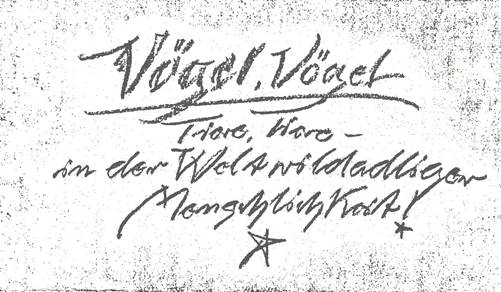 Vögel, Vögel
Tiere, Tiere –
in der Welt wildadliger
Menschlichkeit!